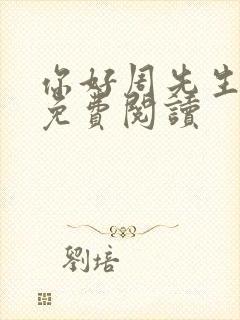 你好周先生
免費閱讀
劉培